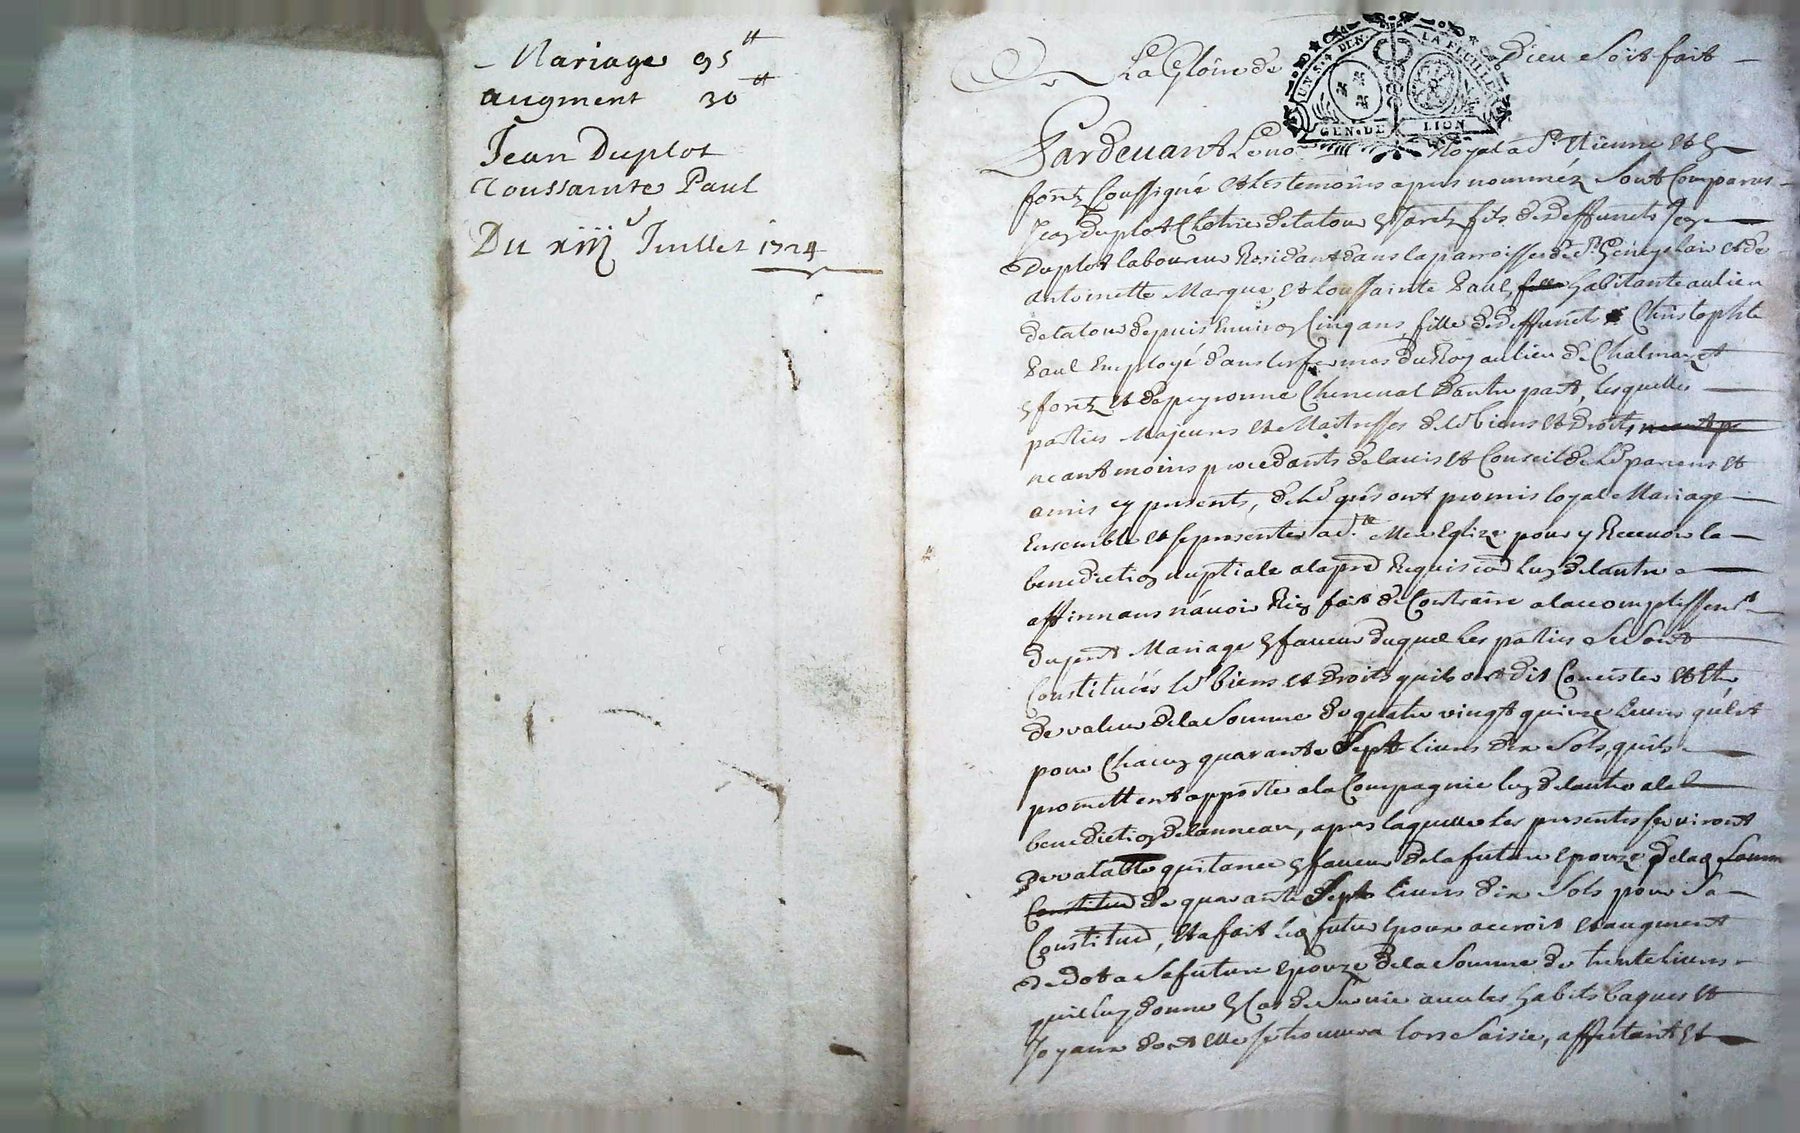 Mariage 95 ₶
augment 30 ₶
Jean Duplot
Toussainte Paul
Du xiiij Juillet 1724
La Gloire de Dieu soit fait
UN S. 4 DEN. LA FEUILLE
GEN. DE LION
Pardevant Le no Royal a St. Etienne et en
forêz soussigné et les temoins apres nomméz sont comparus
Jean duplot de latour en Jarêz fils de deffuncts Jean
Duplot laboureur Residant dans la parroisse de St. et de
antoinette Marque, et toussainte Paul, fille habitante au lieu
de latour depuis Environ Cinq ans, fille de deffuncts Christophle
Paul Employé dans les fermes du Roy au lieu de Chalmazet
en forêz et de peyronne Cheneval d'autre part, Lesquelles
parties Majeures et Maitresses de Ls biens et droits neant
neantmoins procedants de lavis et Conseil de Ls parens et
amis cy presents, de Ls grés ont promis loyal Mariage
Ensemble et se presenter a Ste. Mere Eglize pour y Recevoir la
benediction nuptiale a la pre Requisi᷉on lun de lautre
affirmans n'avoir Rien fait de Contraire a lacomplissemt
du pent Mariage en faveur duquel les parties se sont
Constituées Ls biens et Droits quils ont dit Concister et Etre
de valeur de la somme de quatre vingt quinze livres qu'est
pour Chacun quarante sept livres dix sols, quils
promettent apporter a la Compagnie lun de lautre a la
benediction de lanneau, apres laquelle les presentes serviront
de valable quitance en faveur de la future epouze de la q somme
Constitu᷉on de quarante sept livres dix sols pour sa
Constitu᷉on, Et a fait Led futur epoux accroit et augment
de dot a sa future epouze de la somme de trente livres
quil luy donne en Cas de survie avec les habits bagues et
Joyaux dont elle se trouvera lors saisie, affectant et